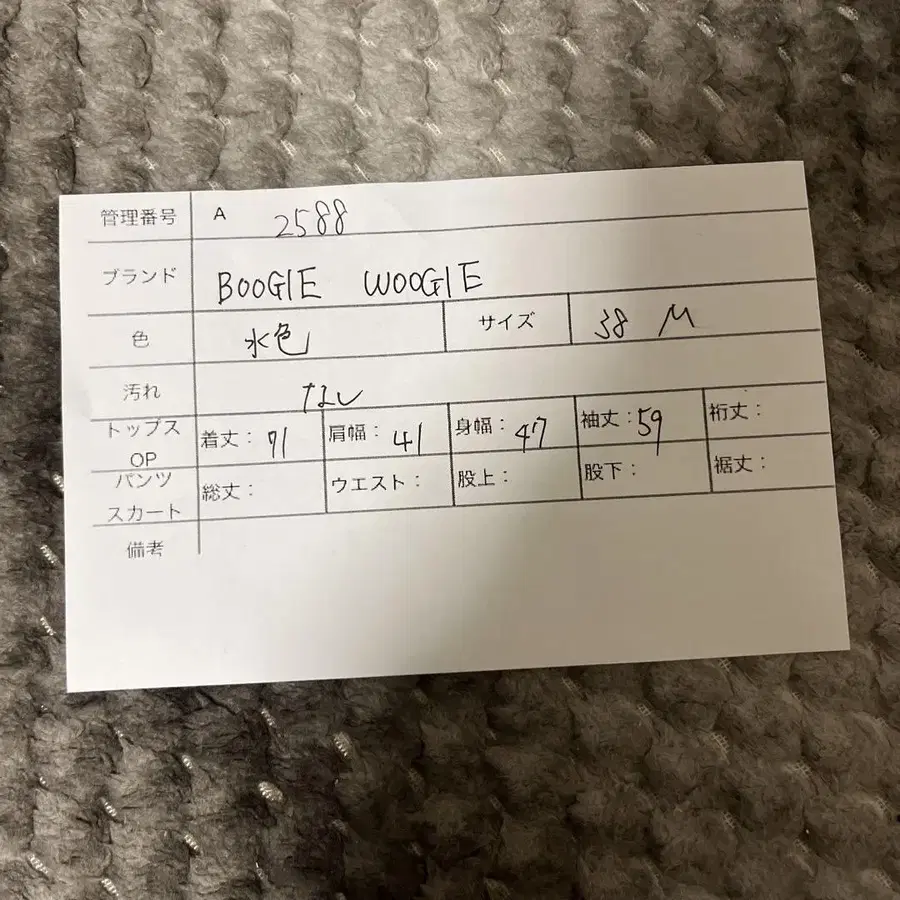 管理番号 A 2588
ブランド BOOGIE WOOGIE
色 水色 サイズ 38 M
汚れ なし
トップス OP 着丈: 71 肩幅: 41 身幅: 47 袖丈: 59 裄丈:
パンツ スカート 総丈: ウエスト: 股上: 股下: 裾丈:
備考